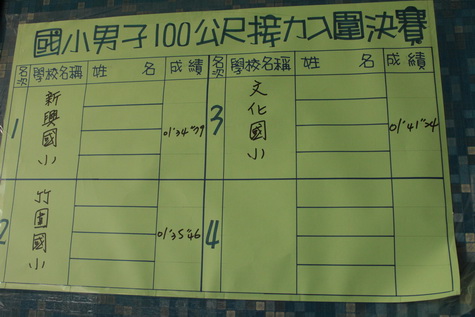 國小男子100公尺接力入圍決賽
名次 學校名稱 姓名 成績 名次 學校名稱 姓名 成績
1 新興國小 01'34"79 3 文化國小 01'41"24
2 竹園國小 01'35"46 4